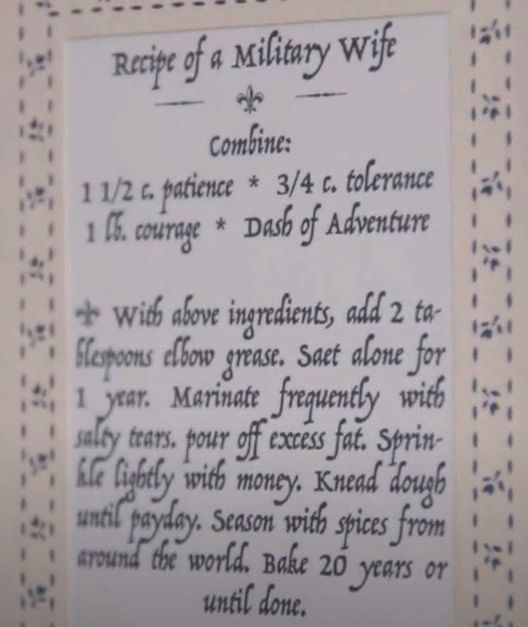 Recipe of a Military Wife
Combine:
1 1/2 c. patience * 3/4 c. tolerance
1 lb. courage * Dash of Adventure
With above ingredients, add 2 ta-
blespoons elbow grease. Saet alone for
1 year. Marinate frequently with
salty tears. pour off excess fat. Sprin-
kle lightly with money. Knead dough
until payday. Season with spices from
around the world. Bake 20 years or
until done.